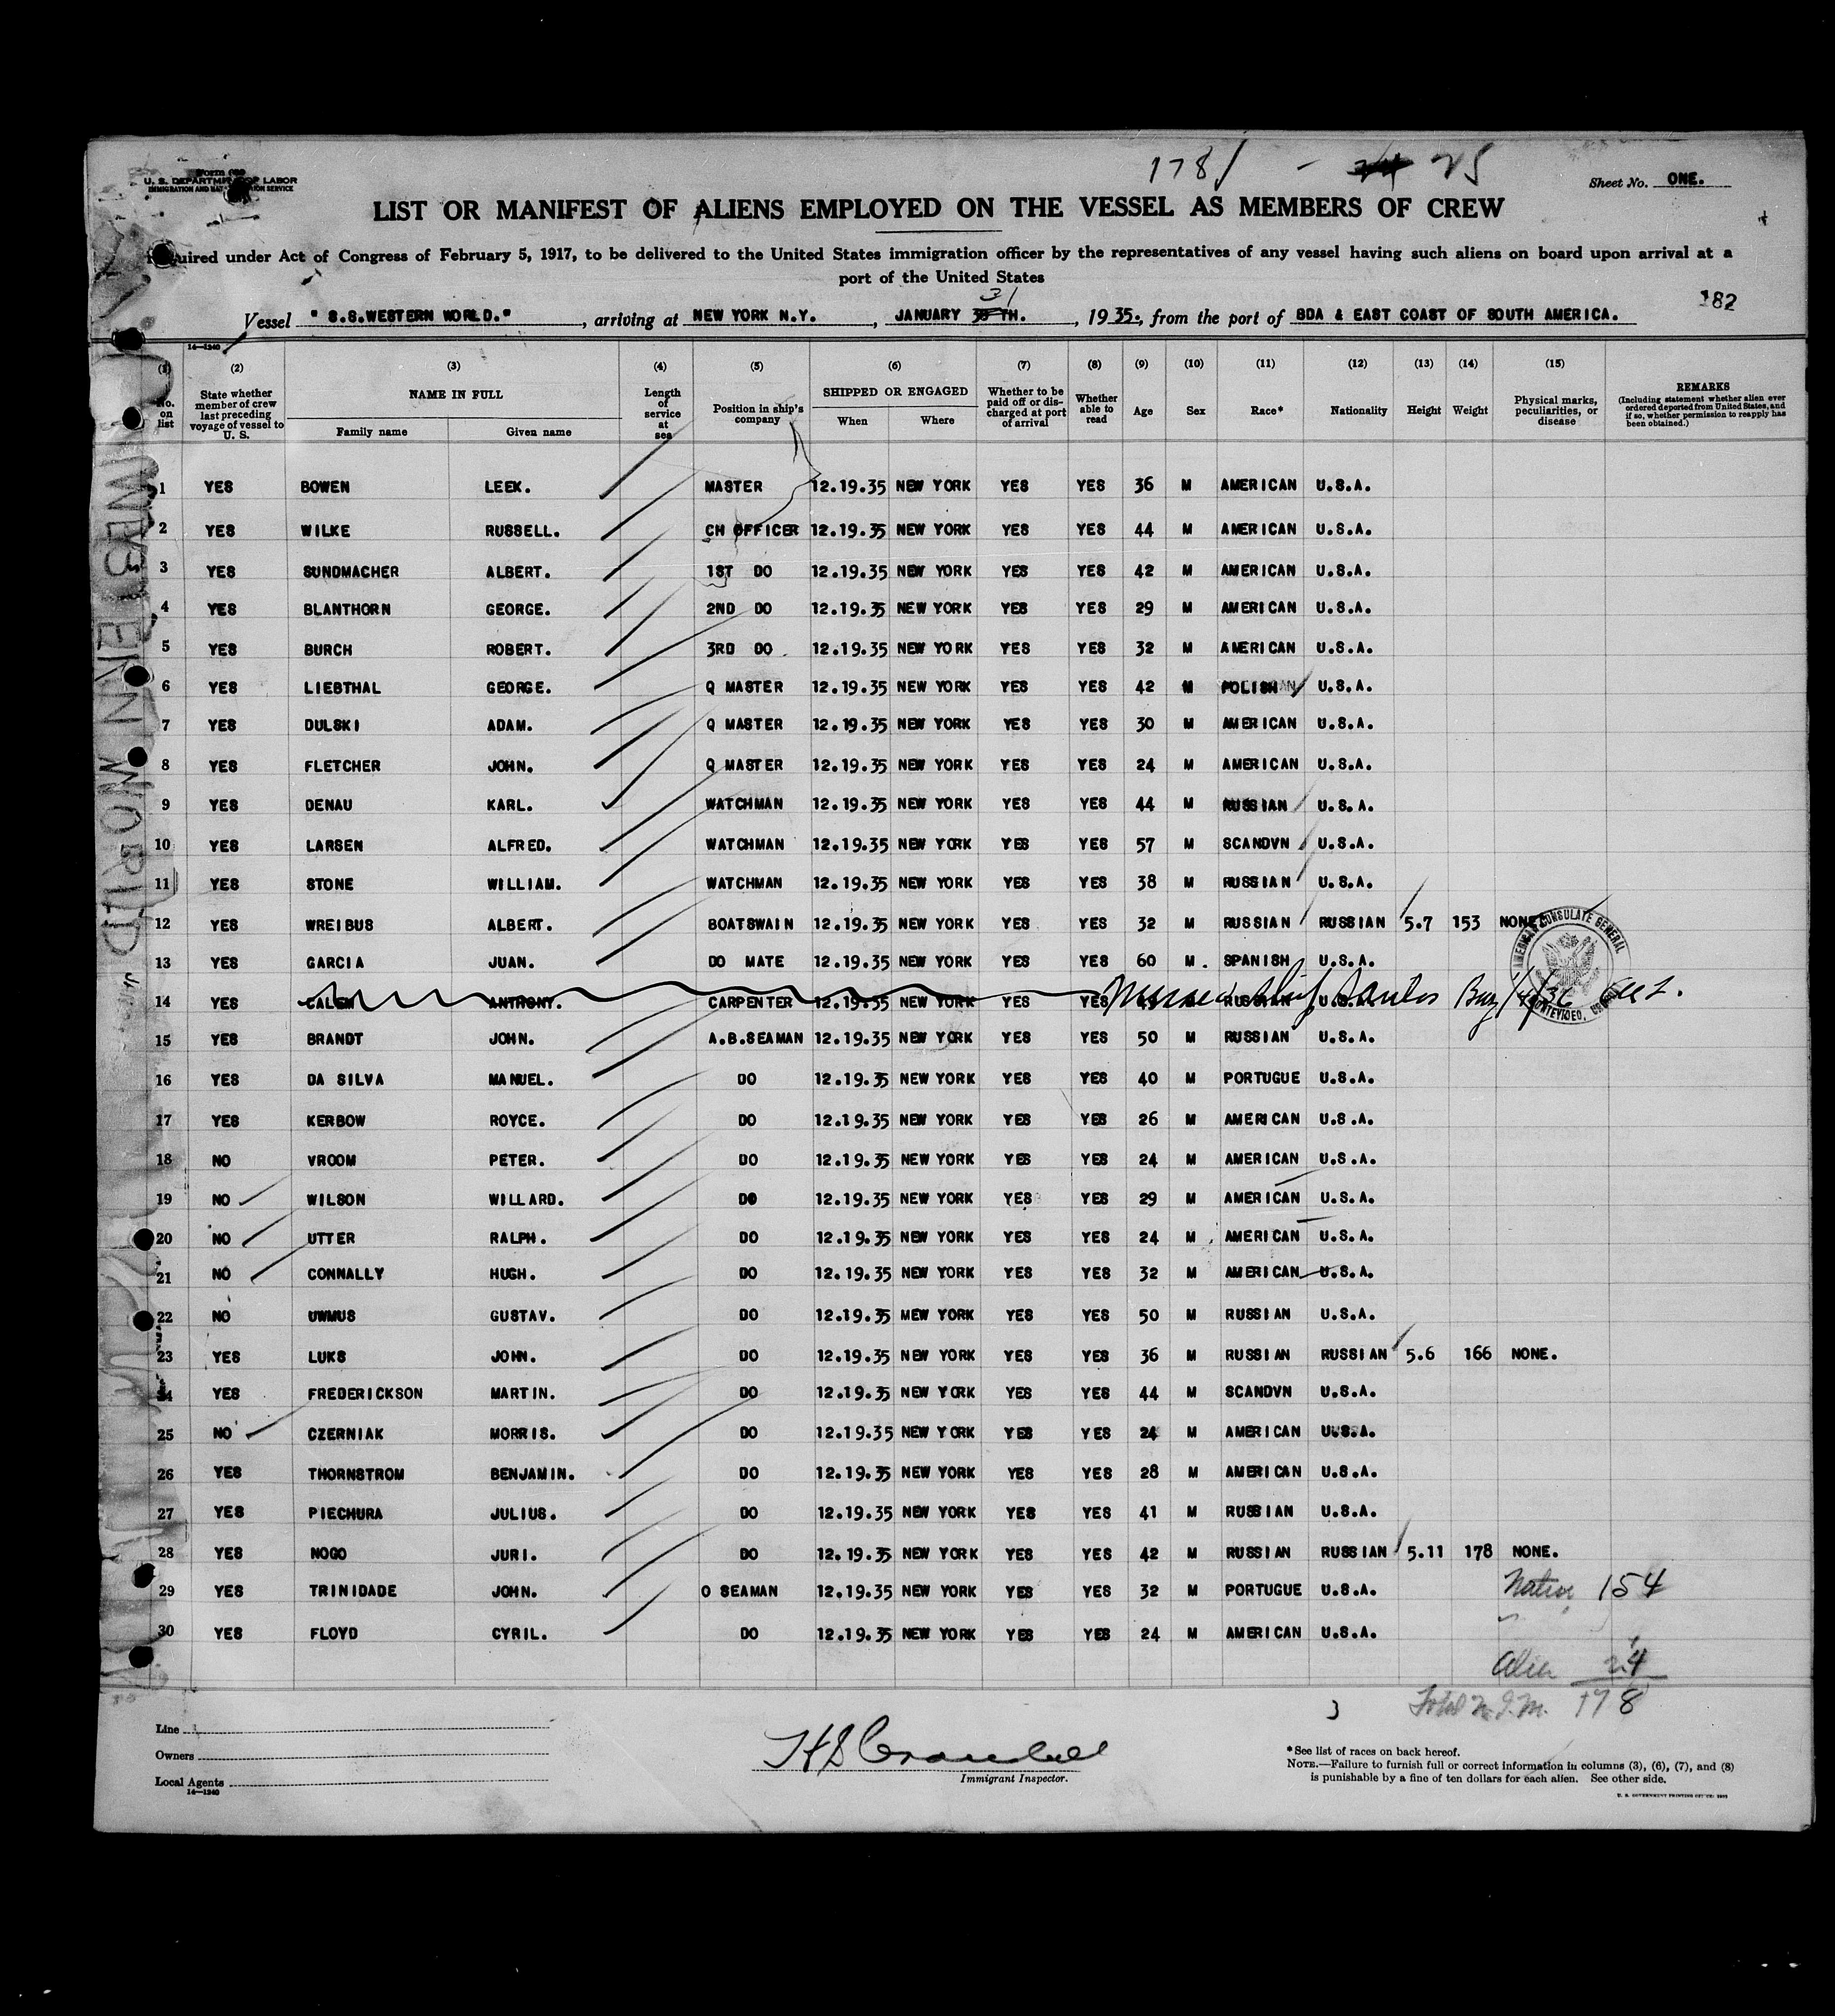 1781 - 25
Form 689
U. S. DEPARTMENT OF LABOR
IMMIGRATION AND NATURALIZATION SERVICE
Sheet No. ONE.
LIST OR MANIFEST OF ALIENS EMPLOYED ON THE VESSEL AS MEMBERS OF CREW
Required under Act of Congress of February 5, 1917, to be delivered to the United States immigration officer by the representatives of any vessel having such aliens on board upon arrival at a
port of the United States
31
182
Vessel "S.S.WESTERN WORLD.", arriving at NEW YORK N.Y., JANUARY 30TH., 1935., from the port of BDA & EAST COAST OF SOUTH AMERICA.
14—1240
(1) (2) (3) (4) (5) (6) (7) (8) (9) (10) (11) (12) (13) (14) (15)
No. on list
State whether member of crew last preceding voyage of vessel to U. S.
NAME IN FULL
Family name Given name
Length of service at sea
Position in ship's company
SHIPPED OR ENGAGED
When Where
Whether to be paid off or discharged at port of arrival
Whether able to read
Age Sex Race* Nationality Height Weight
Physical marks, peculiarities, or disease
REMARKS
(Including statement whether alien ever ordered deported from United States, and if so, whether permission to reapply has been obtained.)
1 YES BOWEN LEEK. MASTER 12.19.35 NEW YORK YES YES 36 M AMERICAN U.S.A.
2 YES WILKE RUSSELL. CH OFFICER 12.19.35 NEW YORK YES YES 44 M AMERICAN U.S.A.
3 YES SUNDMACHER ALBERT. 1ST DO 12.19.35 NEW YORK YES YES 42 M AMERICAN U.S.A.
4 YES BLANTHORN GEORGE. 2ND DO 12.19.35 NEW YORK YES YES 29 M AMERICAN U.S.A.
5 YES BURCH ROBERT. 3RD DO. 12.19.35 NEW YORK YES YES 32 M AMERICAN U.S.A.
6 YES LIEBTHAL GEORGE. Q MASTER 12.19.35 NEW YORK YES YES 42 M POLISH U.S.A.
7 YES DULSKI ADAM. Q MASTER 12.19.35 NEW YORK YES YES 30 M AMERICAN U.S.A.
8 YES FLETCHER JOHN. Q MASTER 12.19.35 NEW YORK YES YES 24 M AMERICAN U.S.A.
9 YES DENAU KARL. WATCHMAN 12.19.35 NEW YORK YES YES 44 M RUSSIAN U.S.A.
10 YES LARSEN ALFRED. WATCHMAN 12.19.35 NEW YORK YES YES 57 M SCANDVN U.S.A.
11 YES STONE WILLIAM. WATCHMAN 12.19.35 NEW YORK YES YES 38 M RUSSIAN U.S.A.
12 YES WREIBUS ALBERT. BOATSWAIN 12.19.35 NEW YORK YES YES 32 M RUSSIAN RUSSIAN 5.7 153 NONE
AMERICAN CONSULATE GENERAL
MONTEVIDEO,
13 YES GARCIA JUAN. DO MATE 12.19.35 NEW YORK YES YES 60 M. SPANISH U.S.A.
14 YES ANTHONY. CARPENTER 12.19.35 NEW YORK YES YES RUSSIAN U.S.A. Missed ship Santos
15 YES BRANDT JOHN. A.B.SEAMAN 12.19.35 NEW YORK YES YES 50 M RUSSIAN U.S.A.
16 YES DA SILVA MANUEL. DO 12.19.35 NEW YORK YES YES 40 M PORTUGUE U.S.A.
17 YES KERBOW ROYCE. DO 12.19.35 NEW YORK YES YES 26 M AMERICAN U.S.A.
18 NO VROOM PETER. DO 12.19.35 NEW YORK YES YES 24 M AMERICAN U.S.A.
19 NO WILSON WILLARD. DO 12.19.35 NEW YORK YES YES 29 M AMERICAN U.S.A.
20 NO UTTER RALPH. DO 12.19.35 NEW YORK YES YES 24 M AMERICAN U.S.A.
21 NO CONNALLY HUGH. DO 12.19.35 NEW YORK YES YES 32 M AMERICAN U.S.A.
22 NO UWMUS GUSTAV. DO 12.19.35 MEW YORK YES YES 50 M RUSSIAN U.S.A.
23 YES LUKS JOHN. DO 12.19.35 NEW YORK YES YES 36 M RUSSIAN RUSSIAN 5.6 166 NONE.
24 YES FREDERICKSON MARTIN. DO 12.19.35 NEW YORK YES YES 44 M SCANDVN U.S.A.
25 NO CZERNIAK MORRIS. DO 12.19.35 NEW YORK YES YES 24 M AMERICAN U.S.A.
26 YES THORNSTROM BENJAMIN. DO 12.19.35 NEW YORK YES YES 28 M AMERICAN U.S.A.
27 YES PIECHURA JULIUS. DO 12.19.35 NEW YORK YES YES 41 M RUSSIAN U.S.A.
28 YES NOGO JURI. DO 12.19.35 NEW YORK YES YES 42 M RUSSIAN RUSSIAN 5.11 178 NONE.
29 YES TRINIDADE JOHN. O SEAMAN 12.19.35 NEW YORK YES YES 32 M PORTUGUE U.S.A. Native 154
30 YES FLOYD CYRIL. DO 12.19.35 NEW YORK YES YES 24 M AMERICAN U.S.A.
Alien 24
Total 178
3
WESTERN WORLD
Line
Owners
Local Agents
14—1240
Immigrant Inspector.
*See list of races on back hereof.
NOTE.—Failure to furnish full or correct information in columns (3), (6), (7), and (8)
is punishable by a fine of ten dollars for each alien. See other side.